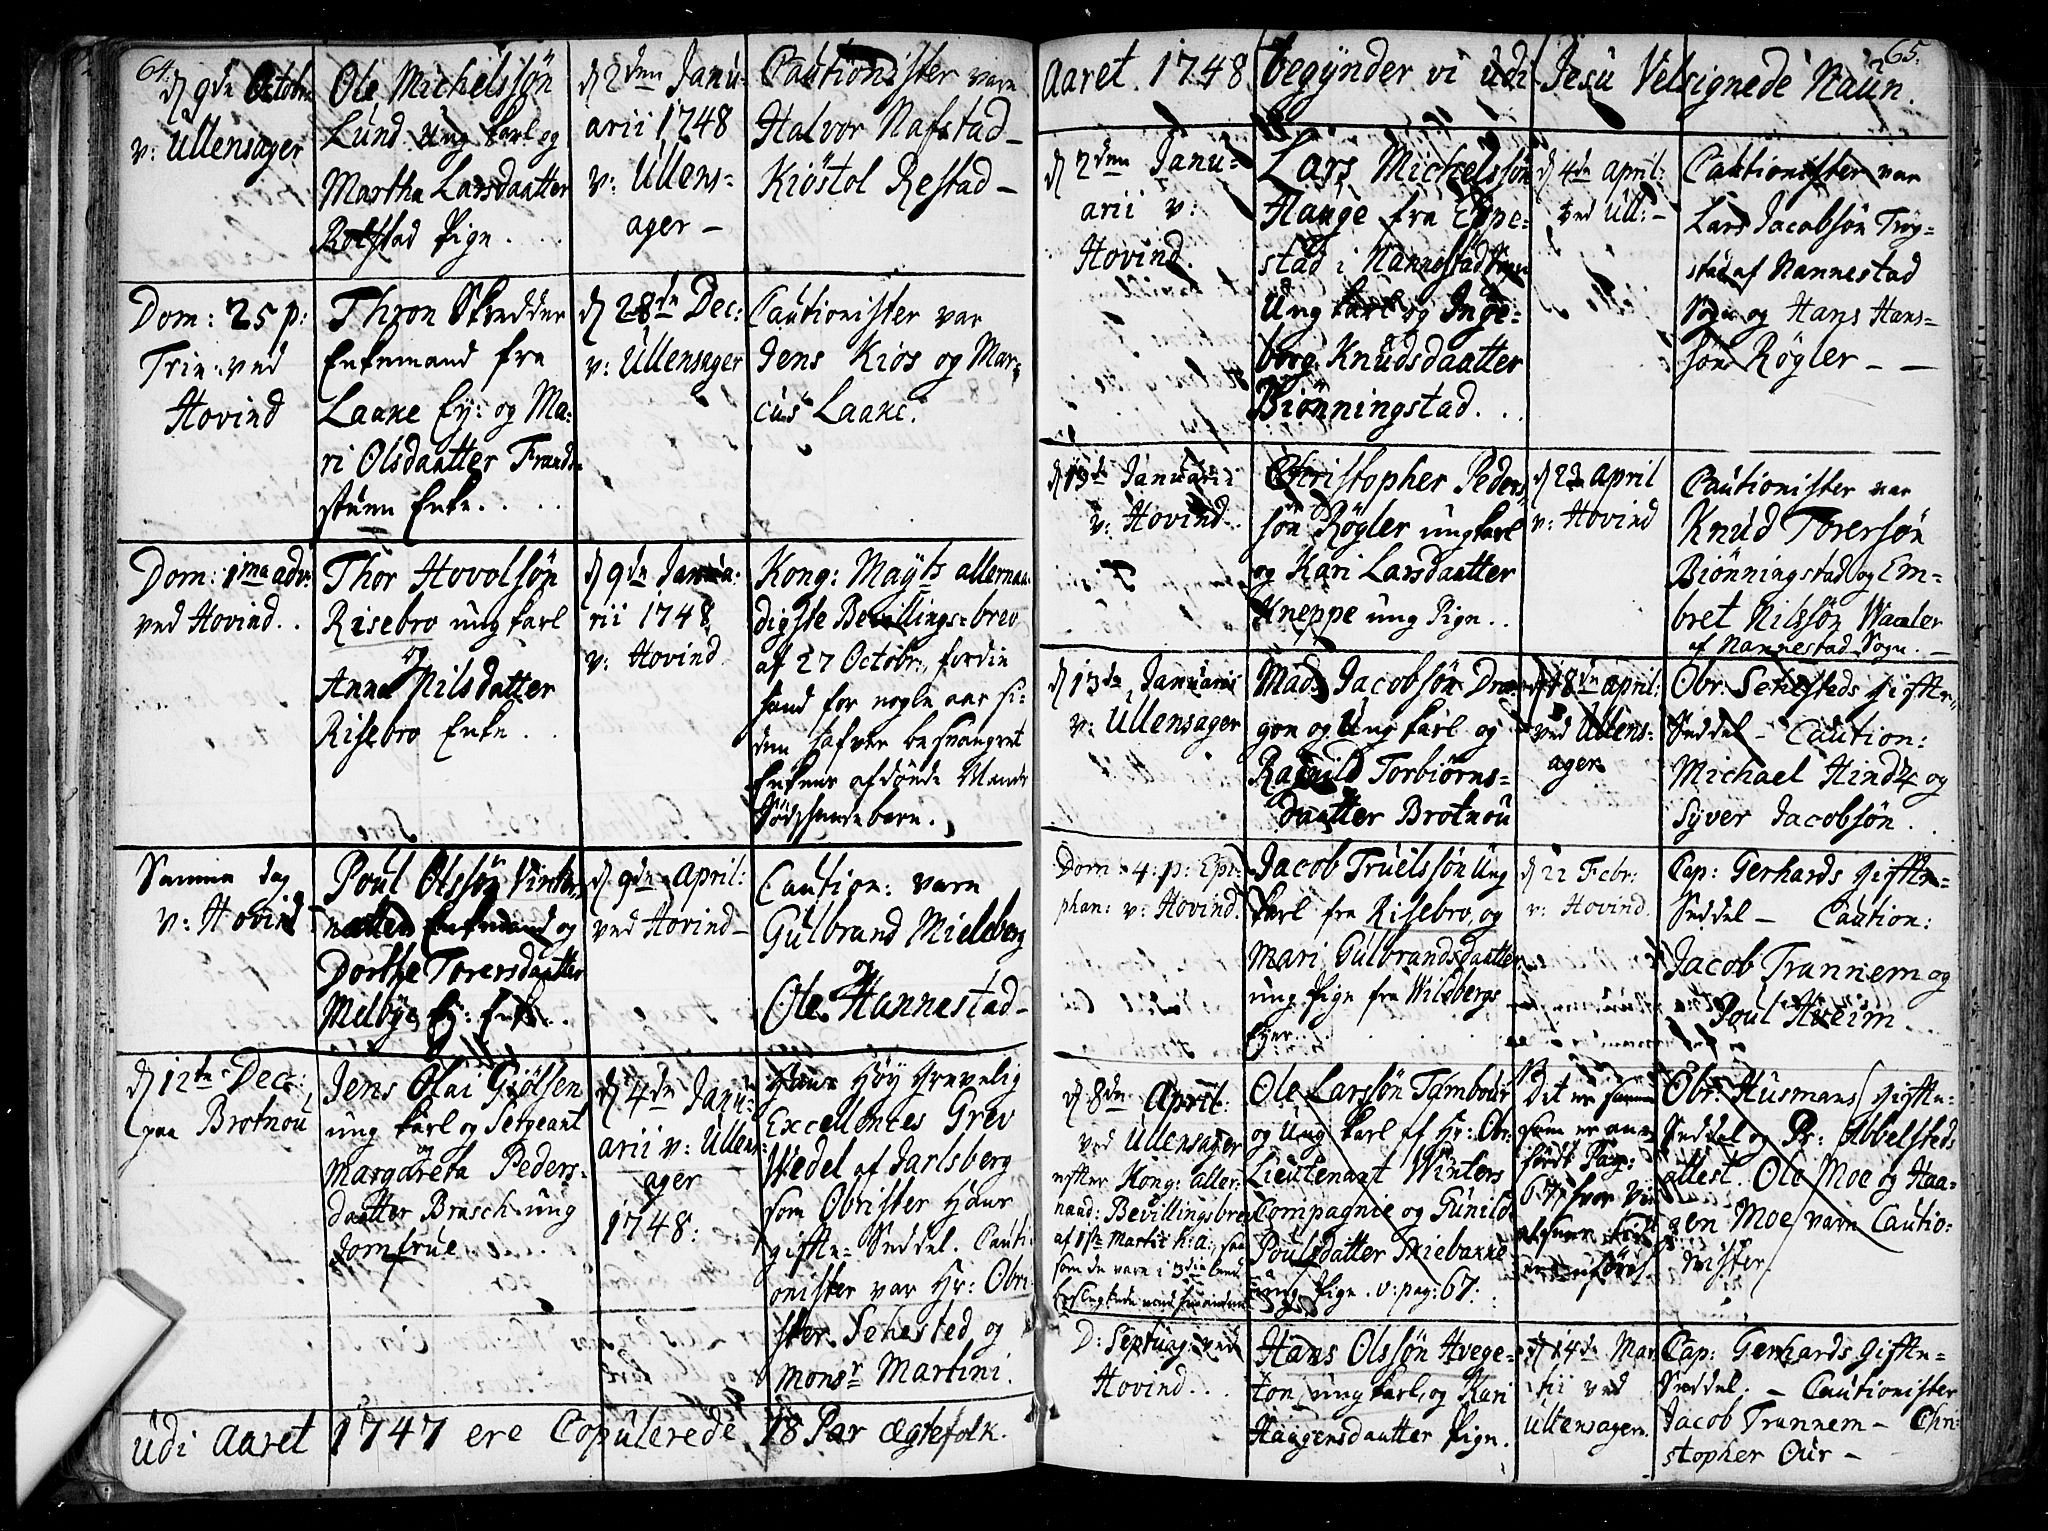 64.
d 9de Octobr
v: Ullensager
Ole Michelssøn
Lund ung karl og
Martha Larsdaatter
Rolstad Pige. . .
d 2den Janu-
arii 1748
v: Ullens-
ager –
Cautionister vare
Halvor Nafstad –
Kiøstol Restad –
Dom: 25 p:
Trin: ved
Hovind
Thron Skredder
Enkemand fra
Laake Ey: og Ma-
ri Olsdaatter Frand-
stuen Enke. . .
d 28de Dec:
v: Ullensager
Cautionister var
Jens Kios og Mar-
cus Laake.
Dom: 1ma adv:
ved Hovind. .
Thor Hovolsøn
Risebro ung karl
og
Anne Nilsdatter
Risebro Enke. .
d 9de Janua:
rii 1748
v: Hovind
Kong: Mayts allernaa-
digste Bevillings-brev
af 27 Octobr:, fordi
hand for nogle aar si-
den hafver besvangret
Enkens afdøde Mands
Sødskendebarn.
Samme dag
v: Hovind
Poul Olssøn Vinter-
natten Enkemand og
Dorthe Torersdaatter
Melbye Ey: Enke. .
d 9de April:
ved Hovind –
Caution: vare
Gulbrand Mieleberg
og
Ole Hannestad –
d 12te Dec:
paa Brotnou
Jens Olai Giølsen
ung karl og Sergeant
og
Margareta Peders-
daatter Brasch ung
Jomfrue
d 4de Janu-
arii v: Ullens-
ager
1748:
Hans Høy Grevelig
Excellences Grev
Wedel af Jarlsberg
som Obrister Hans
gifte-Seddel. Cauti-
onister var Hr: Obri-
ster Sehested og
monsr Martini.
Udi Aaret 1747 ere Copulerede 18 Par ægtefolk.
65.
Aaret 1748 begynder vi udi Jesu Velsignede Naun.
d 2den Janu-
arii v:
Hovind.
Lars Michelssøn
Hauge fra Eppe-
stad i Nannestad Sogn
Ung karl og Inge-
borg Knudsdaatter
Biønningstad. . .
d 4de April:
ved Ull: –
Cautionister var
Lars Jacobsøn Trøy-
stad af Nannestad
Sogn og Hans Hans-
søn Røgler – –
d 13de Januarii
v: Hovind. .
Christopher Peders-
søn Røgler ung karl
og Kari Larsdaatter
Kneppe ung Pige. .
d 23 April
v: Hovind
Cautionister var
Knud Torersøn
Biønningstad og Em-
bret Nilssøn Waaler
af Nannestad Sogn. –
d 13de Januarii
v: Ullensager
Mads Jacobsøn Dra-
gon og Ung karl og
Ragnild Torbiørns-
daatter Brotnou
d 18de April:
ved Ullens-
ager
Obr: Sehesteds gifte-
Seddel – Caution:
Michael Hindz og
Syver Jacobsøn.
Dom: 4: p: Epi-
phan: v: Hovind.
Jacob Truelssøn Ung
karl fra Risebro, og
Mari Gulbrandsdaatter
ung Pige fra Wilsbergs
Eyer. .
d 22 Febr:
v: Hovind
Cap: Gerhards gifte-
Seddel – Caution:
Jacob Trannem og
Poul Hveim. . .
d 8de April:
ved Ullensager
efter Kong: aller-
naad: Bevillingsbrev
af 1ste Martii h: a:, saa
som de vare i 3die leed
beslegtede
Ole Larssøn Tambour
og Ung karl af Hr: Obr:
Lieutenant Winters
Compagnie og Gunild
Poulsdatter Skiebakke
ung Pige. v: pag: 67:
Dit er samme
som er an-
ført Pag:
67, hvor
Obr: Husmans gifte-
Seddel og Pr: Abbelsteds
attest. Ole Moe og Haa-
gen Moe vare Cautio-
nister
D: Septuag: ved
Hovind. . .
Hans Olssøn Hvege-
ton, ung karl, og Kari
Haagensdaatter Pige.
d 14de Mar-
tii ved
Ullensager.
Cap: Gerhards Gifte-
Seddel. – Cautionister
Jacob Trannem – Chri-
stopher Our –